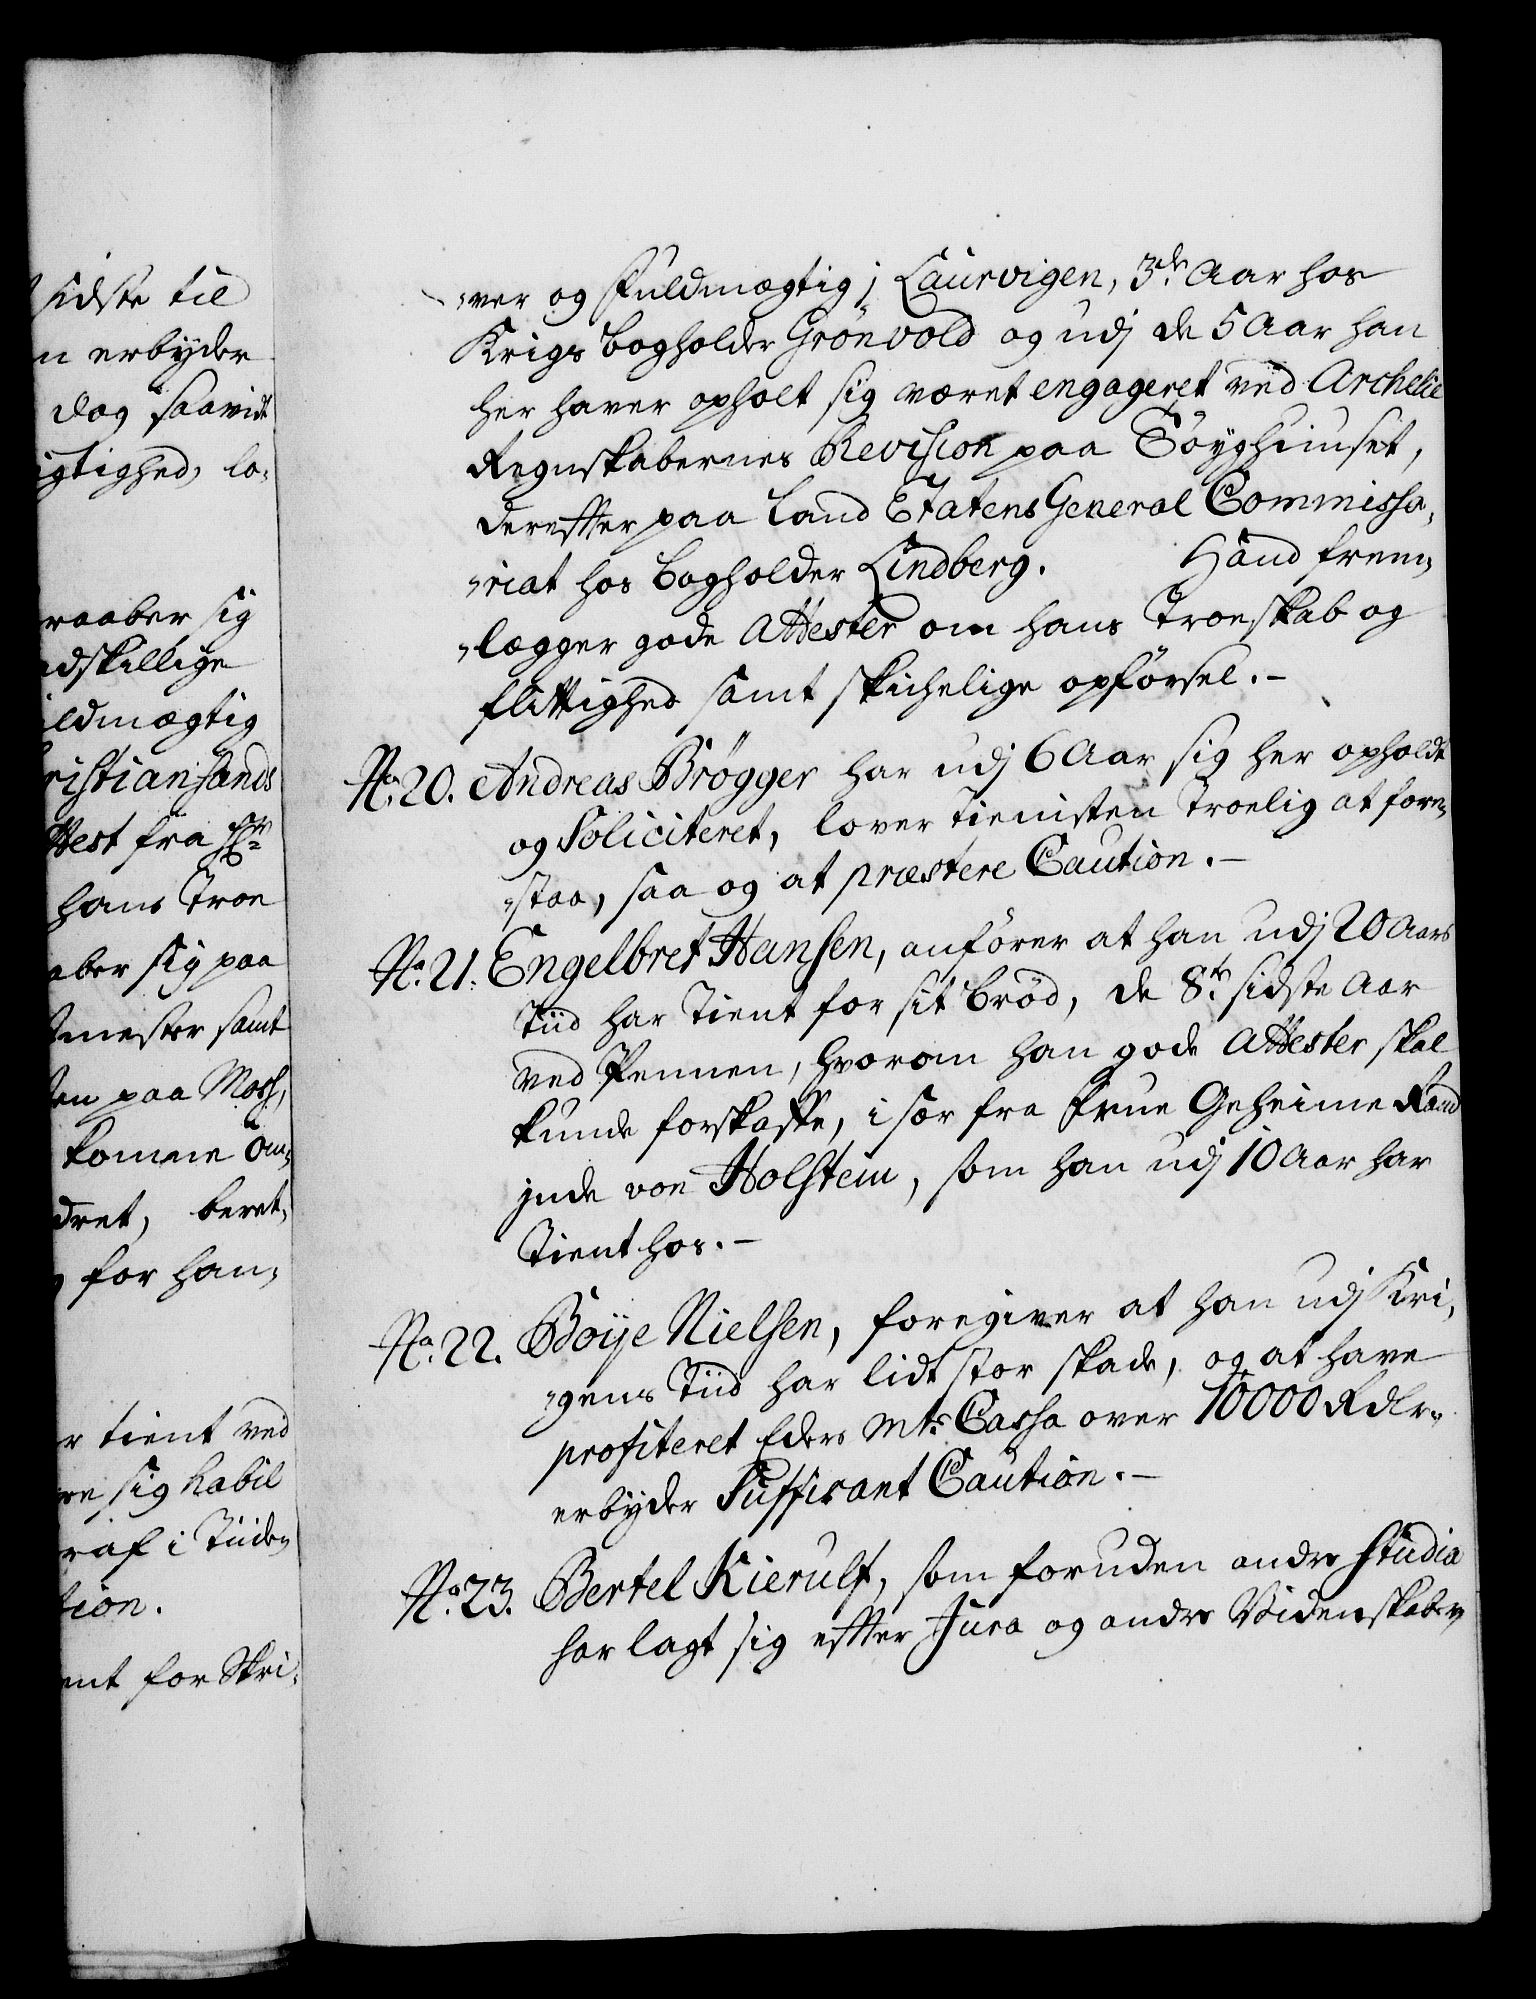 sidste til
n erbyder
dog saavidt
igtighed, lo-
raaber sig
adskillige
uldmægtig
ristiansands
ttest fra Hr:
hans Troe
aber sig paa
tmester samt
ten paa Moss,
komme an-
dret, beret-
for han-
r tient ved
re sig habil
raf i Tiide-
tion.
ent for Skri-
-ver og Fuldmægtig j Laurvigen, 3de Aar hos
Krigs bogholder Grönvold og udj de 5 Aar han
her haver opholt sig været engageret ved Archelie
Regnskabernes Revision paa Töyghuuset,
derefter paa Land Etatens General Commissa-
-riat hos bogholder Lindberg. Hand frem-
-lægger gode Attester om hans Troeskab og
flittighed samt skichelige opförsel.-
No. 20. Andreas Brögger har udj 6 Aar sig her opholdt
og Soliciteret, lover tienisten Troelig at fore-
-staa, saa og at præstere Caution.-
No. 21. Engelbret Hansen, anförer at han udj 20 Aars
Tiid har Tient for sit bröd, de 8te sidste Aar
ved Pennen, hvorom han gode Attester skal
kunde forskaffe, i sær fra Frue Geheime Raad
inde von Holstein, som han udj 10 Aar har
Tient hos.-
No. 22. Boÿe Nielsen, foregiver at han udj Kri-
-gens Tiid har lidt stor skade, og at have
profiteret Eders Mts: Cassa over 10000 Rdlr.
erbyder Suffisant Caution.-
No. 23. Bertel Kierulf, som foruden andre Studia
har lagt sig efter Jura og andre Videnskaber